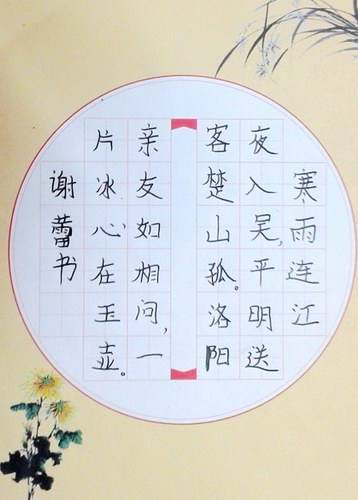 寒雨连江
夜入吴,平明送
客楚山孤。洛阳
亲友如相问,一
片冰心在玉壶。
谢蕾书